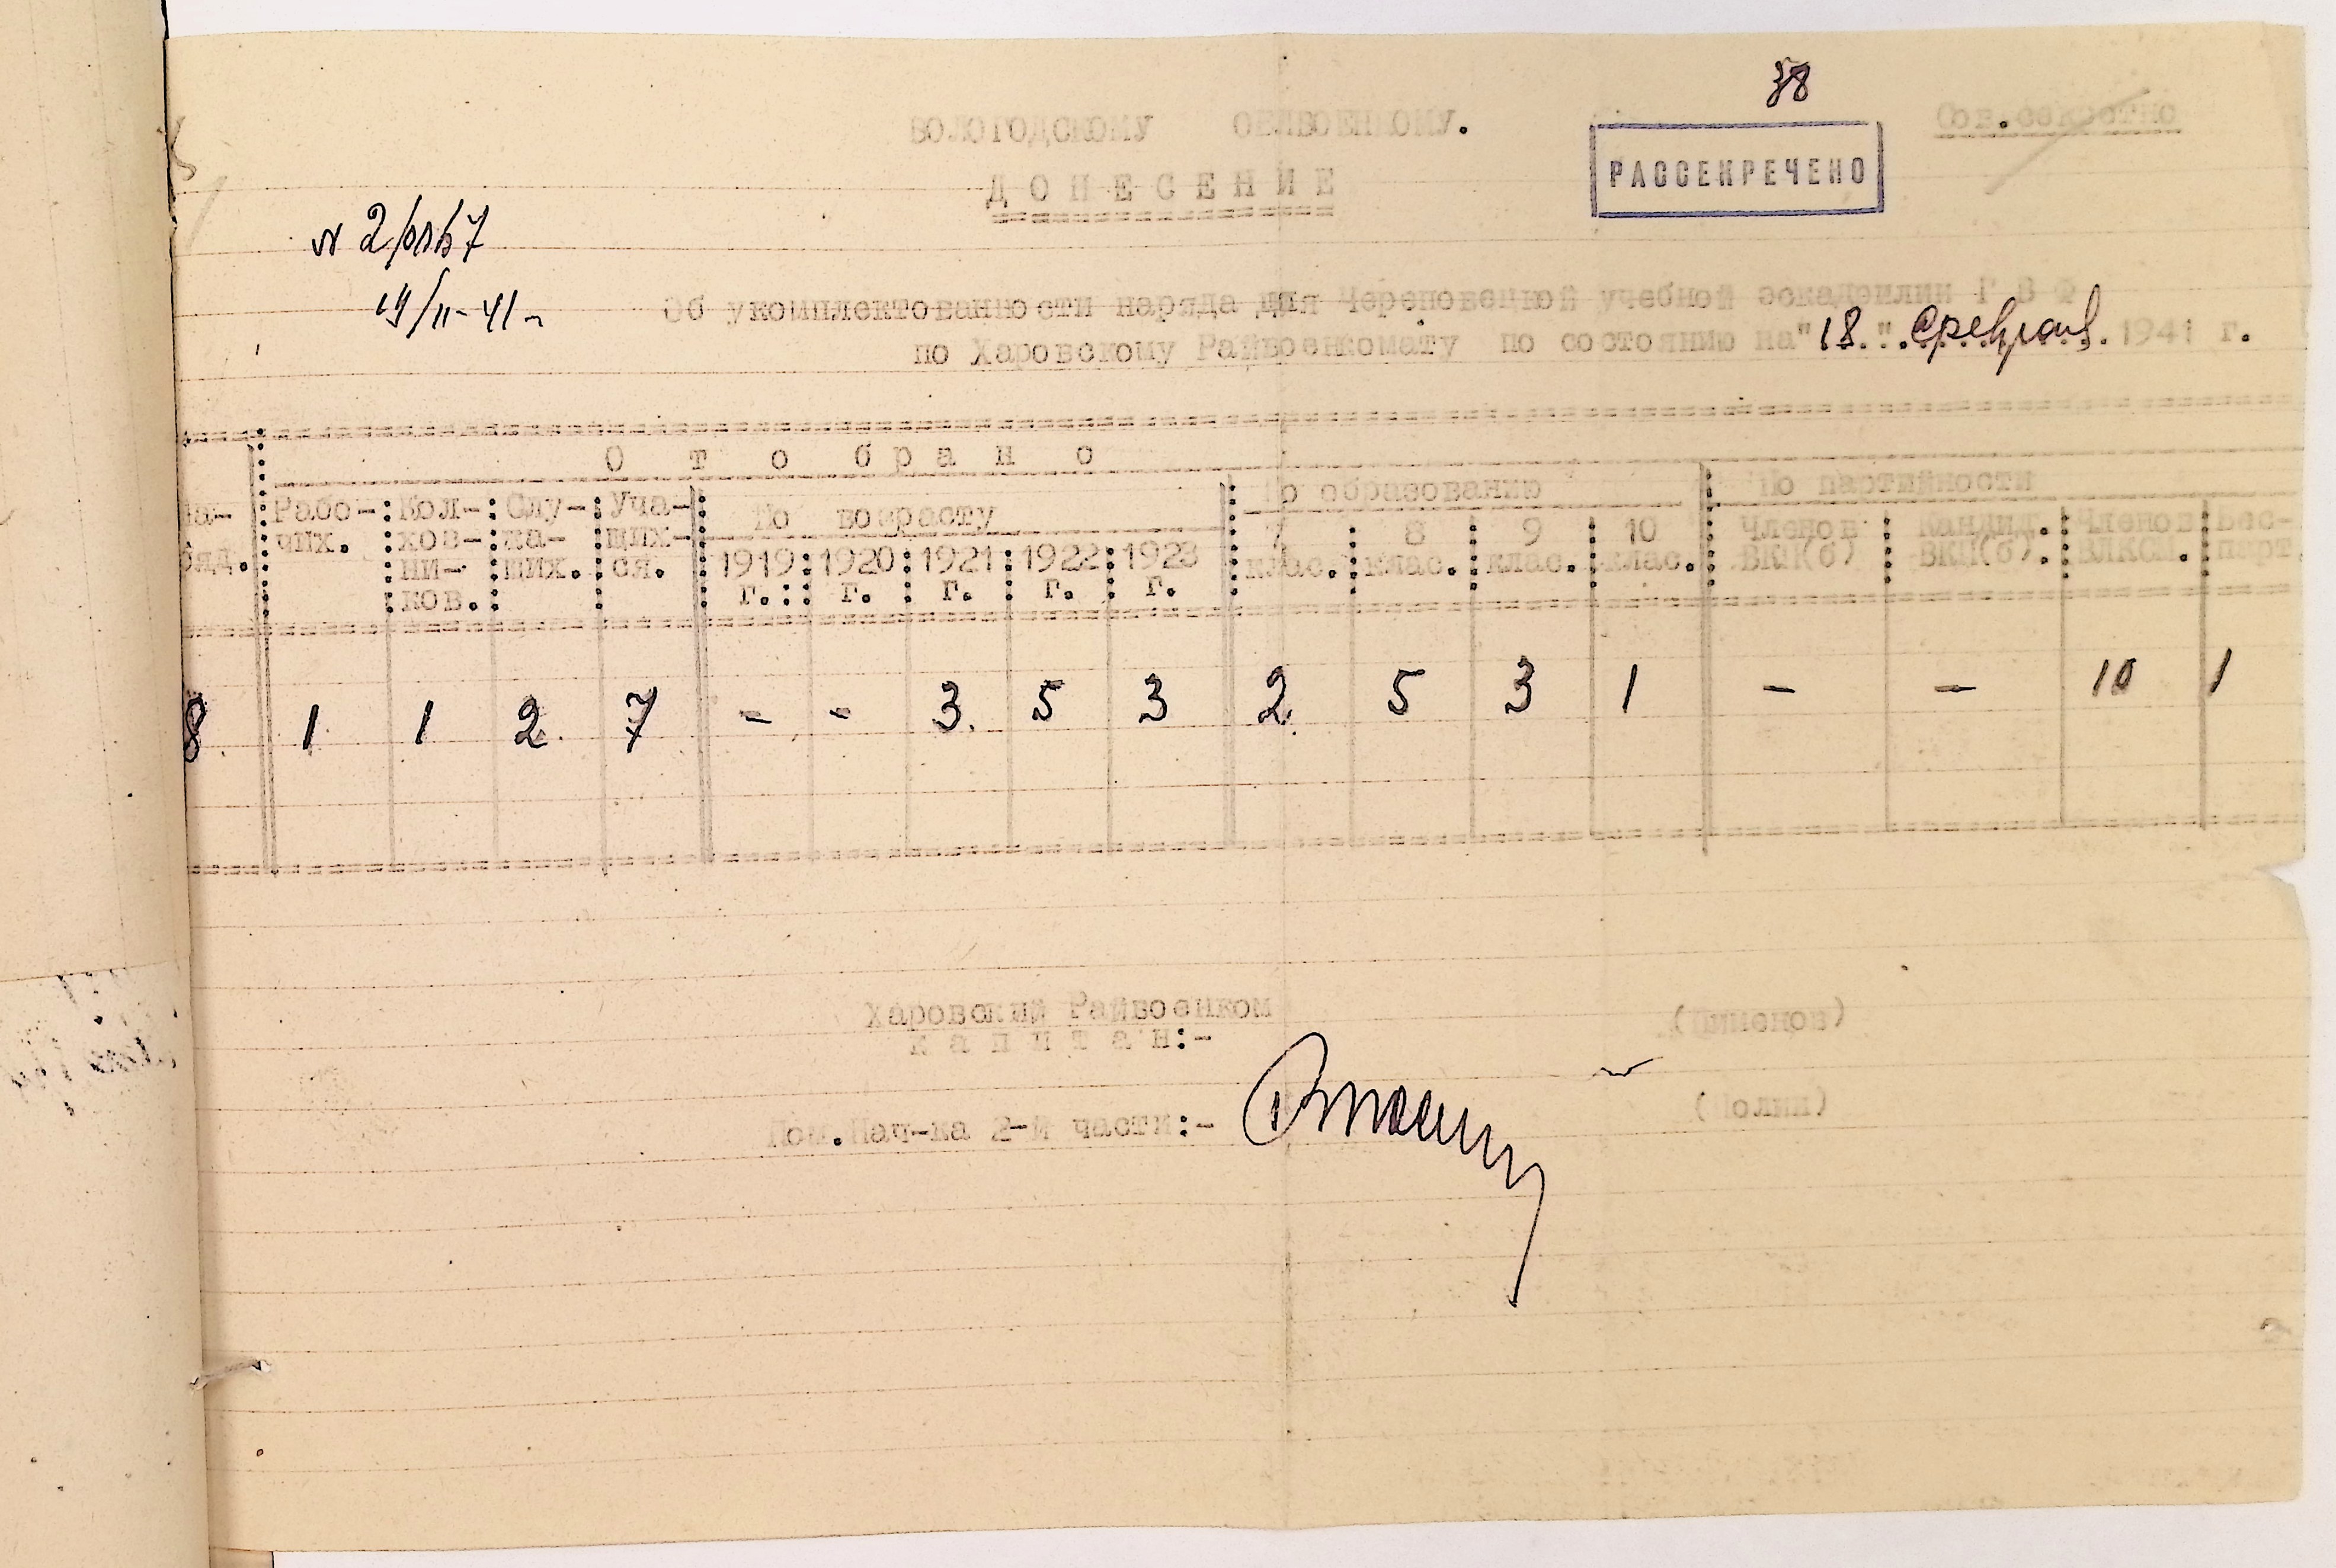 38
ВОЛОГОДСКОМУ ОБЛВОЕНКОМУ.
Сов.секретно
РАССЕКРЕЧЕНО
ДОНЕСЕНИЕ
№ 2/
19/II-41г
Об укомплектованности наряда для Череповецкой учебной эскадрилии Г В Ф
по Харовскому Райвоенкомату по состоянию на "18." февраля. 1941 г.
Отобрано
По образованию
По партийности
По возрасту
На-
ряд.
Рабо-
чих.
Кол-
хоз-
ни-
ков.
Слу-
жа-
щих.
Уча-
щих-
ся.
1919 г.
1920 г.
1921 г.
1922 г.
1923 г.
7 клас.
8 клас.
9 клас.
10 клас.
Членов ВКП(б)
Кандид. ВКП(б).
Членов ВЛКСМ.
Бес-
парт.
8 1 1 2 7 - - 3 5 3 2 5 3 1 - - 10 1
Харовский Райвоенком
капитан:-
Пом.Нач-ка 2-й части:-